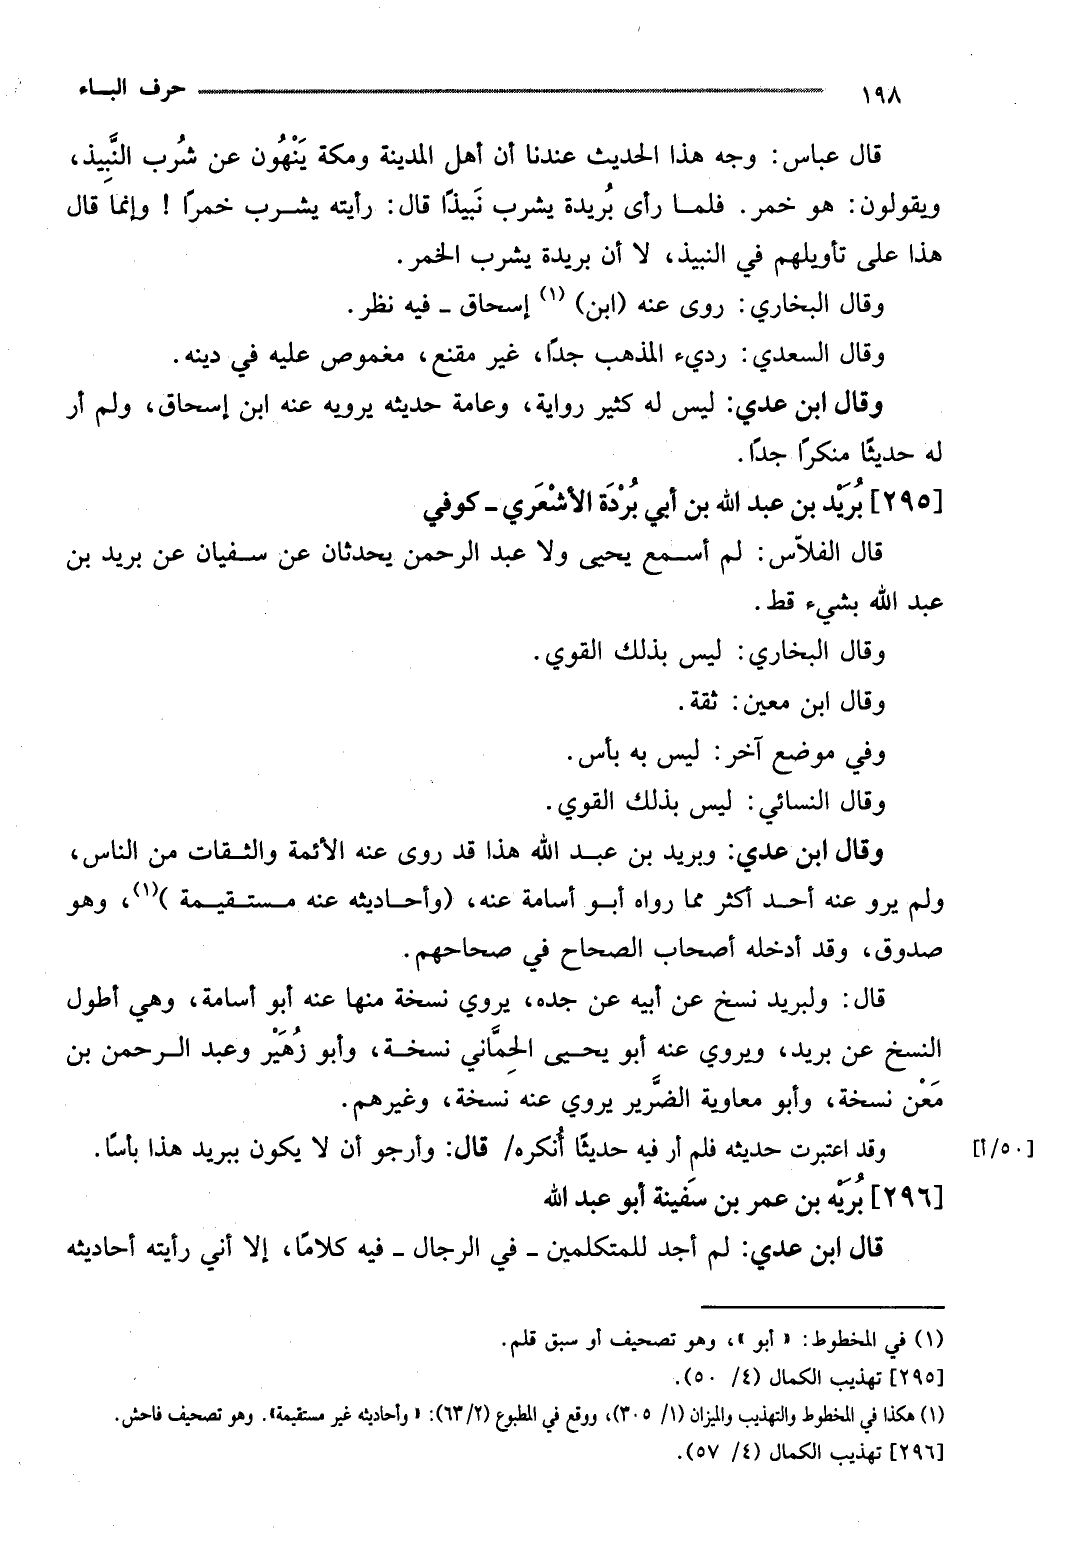 ١٩٨ حرف البـاء
قال عباس: وجه هذا الحديث عندنا أن أهل المدينة ومكة يَنْهُون عن شُرب النَّبِيذ،
ويقولون: هو خمر. فلمـا رأى بُريدة يشرب نَبيذًا قال: رأيته يشـرب خمرًا ! وإنما قال
هذا على تأويلهم في النبيذ، لا أن بريدة يشرب الخمر.
وقال البخاري: روى عنه (ابن) (١) إسحاق ـ فيه نظر.
وقال السعدي: رديء المذهب جدًا، غير مقنع، مغموص عليه في دينه.
وقال ابن عدي: ليس له كثير رواية، وعامة حديثه يرويه عنه ابن إسحاق، ولم أر
له حديثًا منكرًا جدًا.
[٢٩٥] بُرَيْد بن عبد الله بن أبي بُرْدَة الأشْعَري ـ كوفي
قال الفلاّس: لم أسـمع يحيى ولا عبد الرحمن يحدثان عن سـفيان عن بريد بن
عبد الله بشيء قط.
وقال البخاري: ليس بذلك القوي.
وقال ابن معين: ثقة.
وفي موضع آخر: ليس به بأس.
وقال النسائي: ليس بذلك القوي.
وقال ابن عدي: وبريد بن عبـد الله هذا قد روى عنه الأئمة والثـقات من الناس،
ولم يرو عنه أحـد أكثر مما رواه أبـو أسامة عنه، (وأحـاديثه عنه مـستـقيـمة )(١)، وهو
صدوق، وقد أدخله أصحاب الصحاح في صحاحهم.
قال: ولبريد نسخ عن أبيه عن جده، يروي نسخة منها عنه أبو أسامة، وهي أطول
النسخ عن بريد، ويروي عنه أبو يحـيى الحِمَّاني نسخـة، وأبو زُهَيْر وعبد الـرحمن بن
مَعْن نسخة، وأبو معاوية الضَّرير يروي عنه نسخة، وغيرهم.
وقد اعتبرت حديثه فلم أر فيه حديثًا أُنكره/ قال: وأرجو أن لا يكون ببريد هذا بأسًا. [٥٠/أ]
[٢٩٦] بُرَيْه بن عمر بن سَفينة أبو عبد الله
قال ابن عدي: لم أجد للمتكلمين ـ في الرجال ـ فيه كلامًا، إلا أني رأيته أحاديثه
(١) في المخطوط: « أبو »، وهو تصحيف أو سبق قلم.
[٢٩٥] تهذيب الكمال (٤/ ٥٠).
(١) هكذا في المخطوط والتهذيب والميزان (١/ ٣٠٥)، ووقع في المطبوع (٦٣/٢): « وأحاديثه غير مستقيمة». وهو تصحيف فاحش.
[٢٩٦] تهذيب الكمال (٤/ ٥٧).